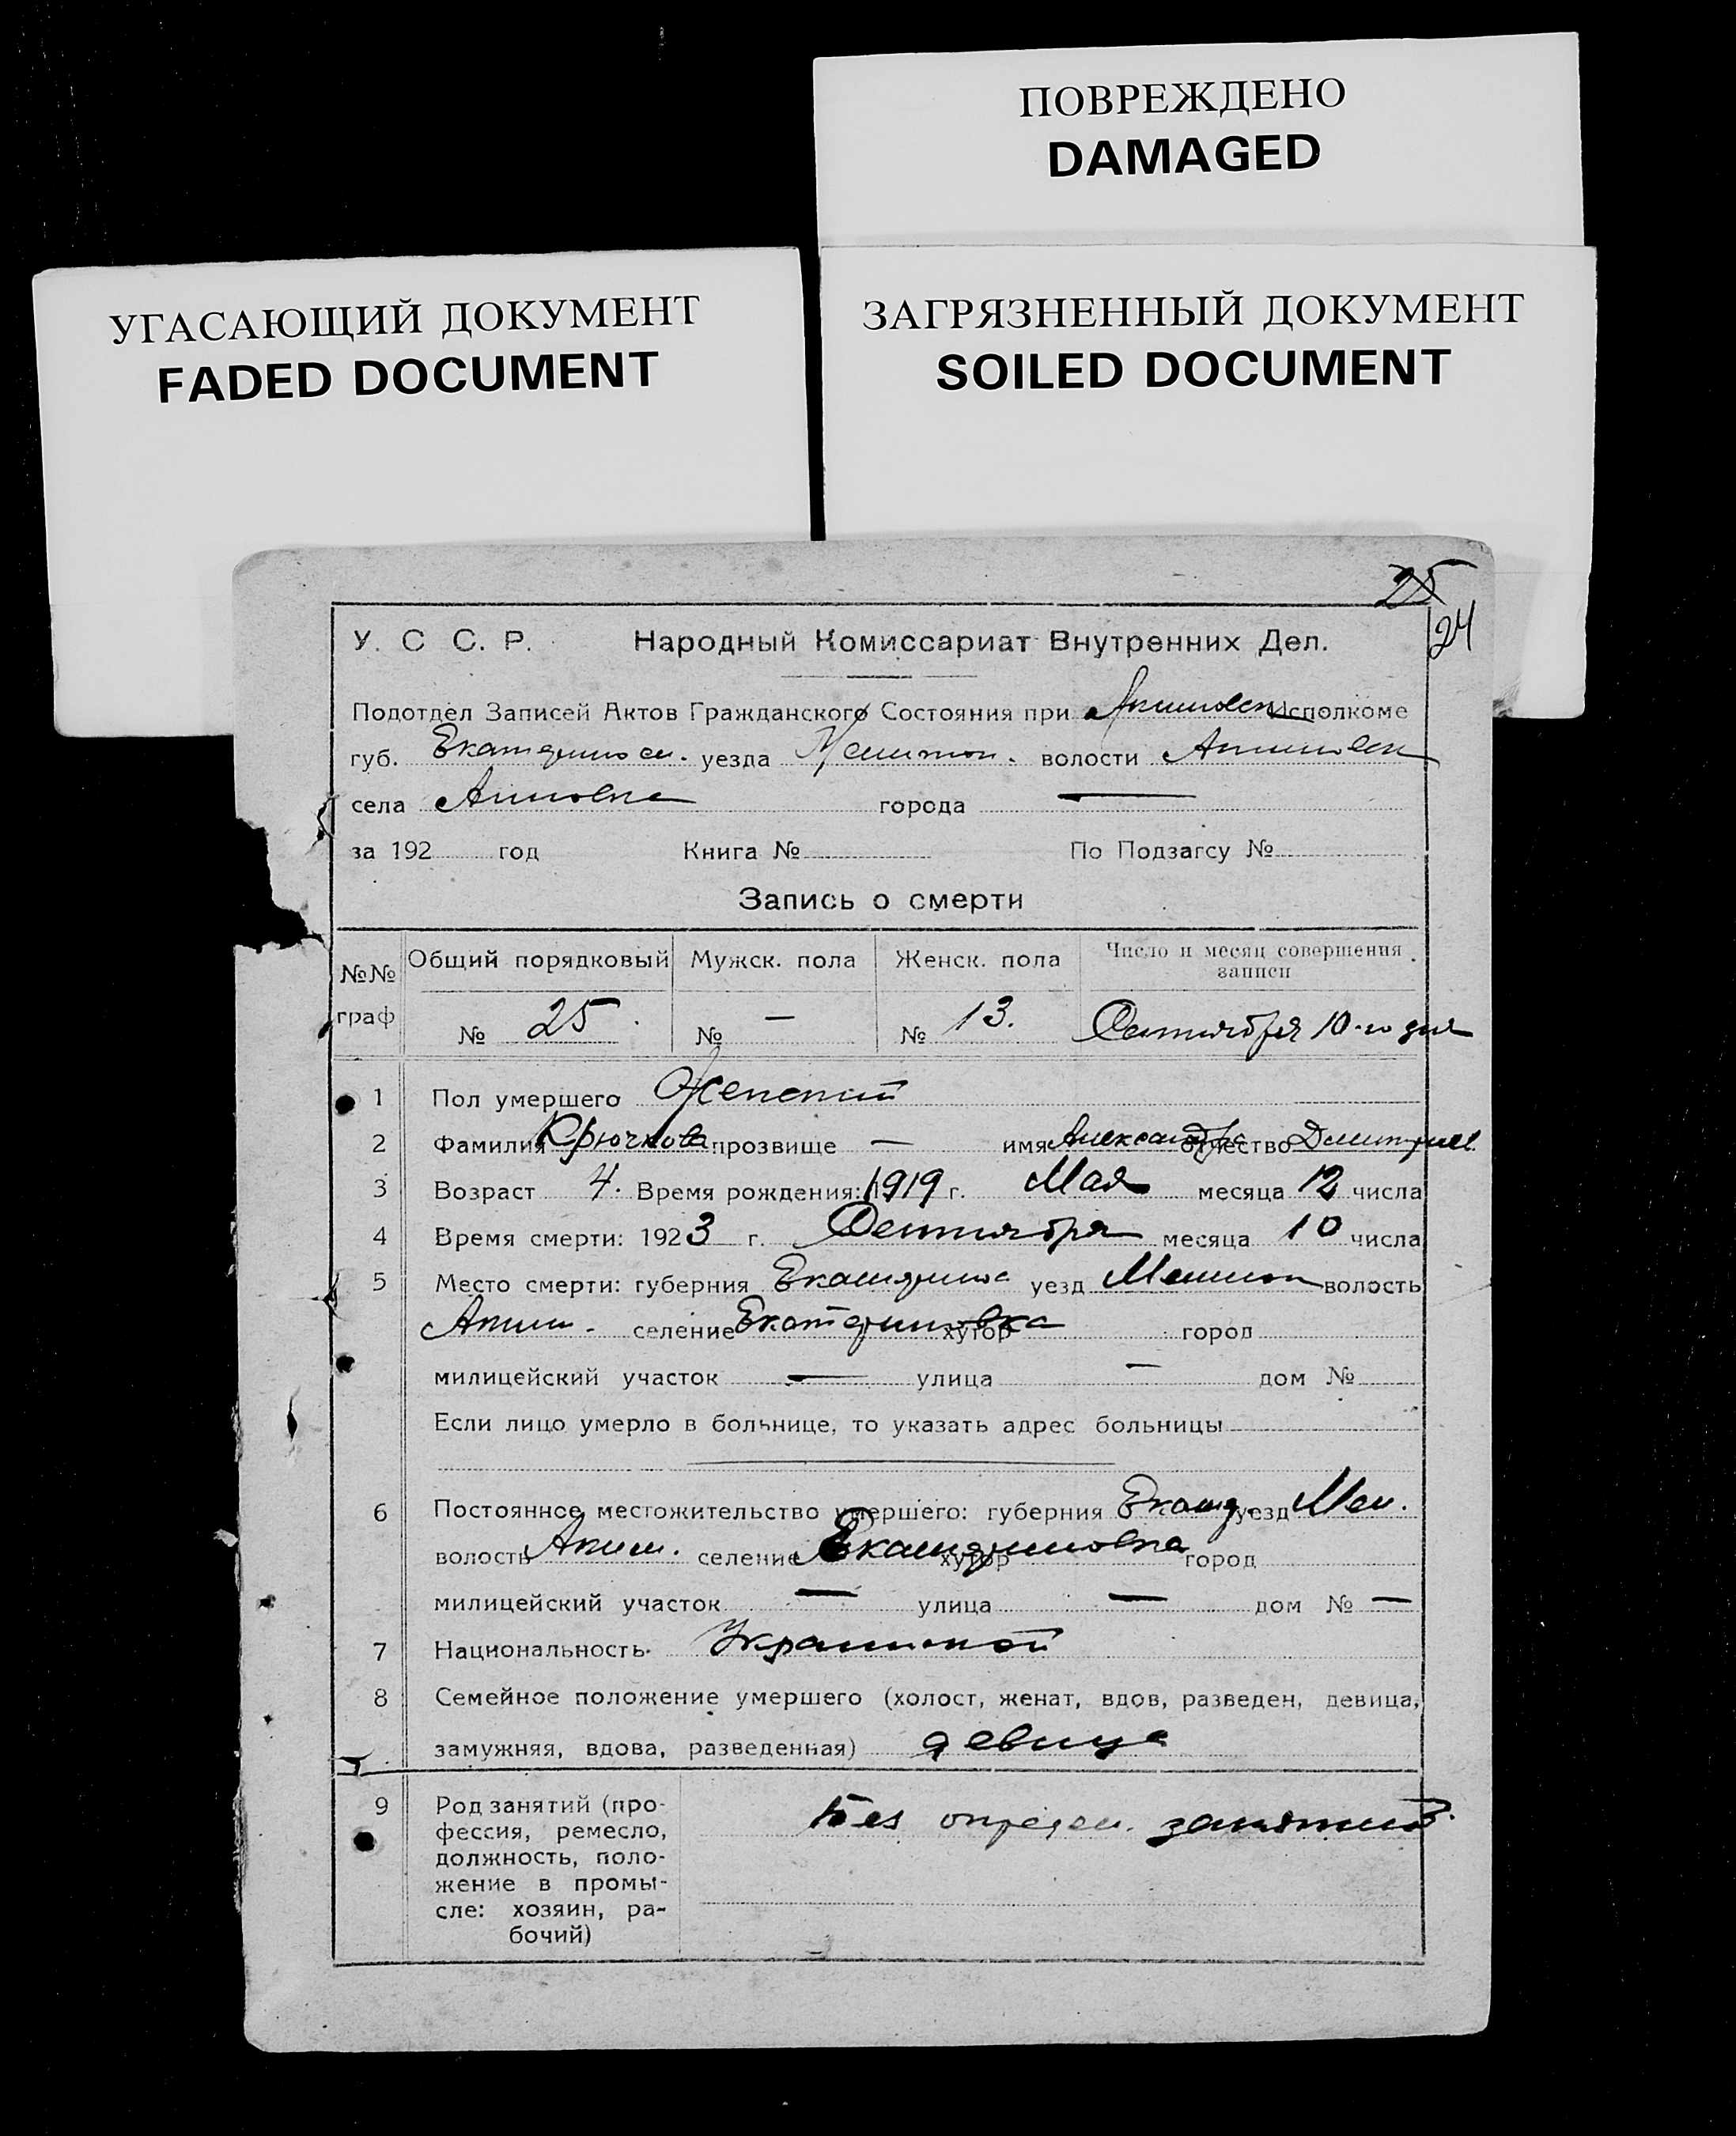 ПОВРЕЖДЕНО
DAMAGED
УГАСАЮЩИЙ ДОКУМЕНТ
FADED DOCUMENT
ЗАГРЯЗНЕННЫЙ ДОКУМЕНТ
SOILED DOCUMENT
25
24
У. С С. Р. Народный Комиссариат Внутренних Дел.
Подотдел Записей Актов Гражданского Состояния при Акимовск Исполкоме
губ. Екатериносл. уезда Мелитоп. волости Акимовск
села Акимовка города —
за 192 год Книга № По Подзагсу №
Запись о смерти
№№ граф Общий порядковый Мужск. пола Женск. пола Число и месяц совершения записи
№ 25 № — № 13. Сентября 10-го дня
1 Пол умершего Женский
2 Фамилия Крючкова прозвище — имя Александра отчество Дмитриев
3 Возраст 4. Время рождения: 1919 г. Мая месяца 12 числа
4 Время смерти: 1923 г. Сентября месяца 10 числа
5 Место смерти: губерния Екатеринос уезд Мелитоп волость
Аким. селение Екатериновка хутор город
милицейский участок — улица — дом №
Если лицо умерло в больнице, то указать адрес больницы
6 Постоянное местожительство умершего: губерния Екатер. уезд Мел.
волость Аким. селение Екатериновка хутор город
милицейский участок — улица — дом № —
7 Национальность Украинской
8 Семейное положение умершего (холост, женат, вдов, разведен, девица,
замужняя, вдова, разведенная) девица
9 Род занятий (про-
фессия, ремесло,
должность, поло-
жение в промы-
сле: хозяин, ра-
бочий)
без определ. занятий.